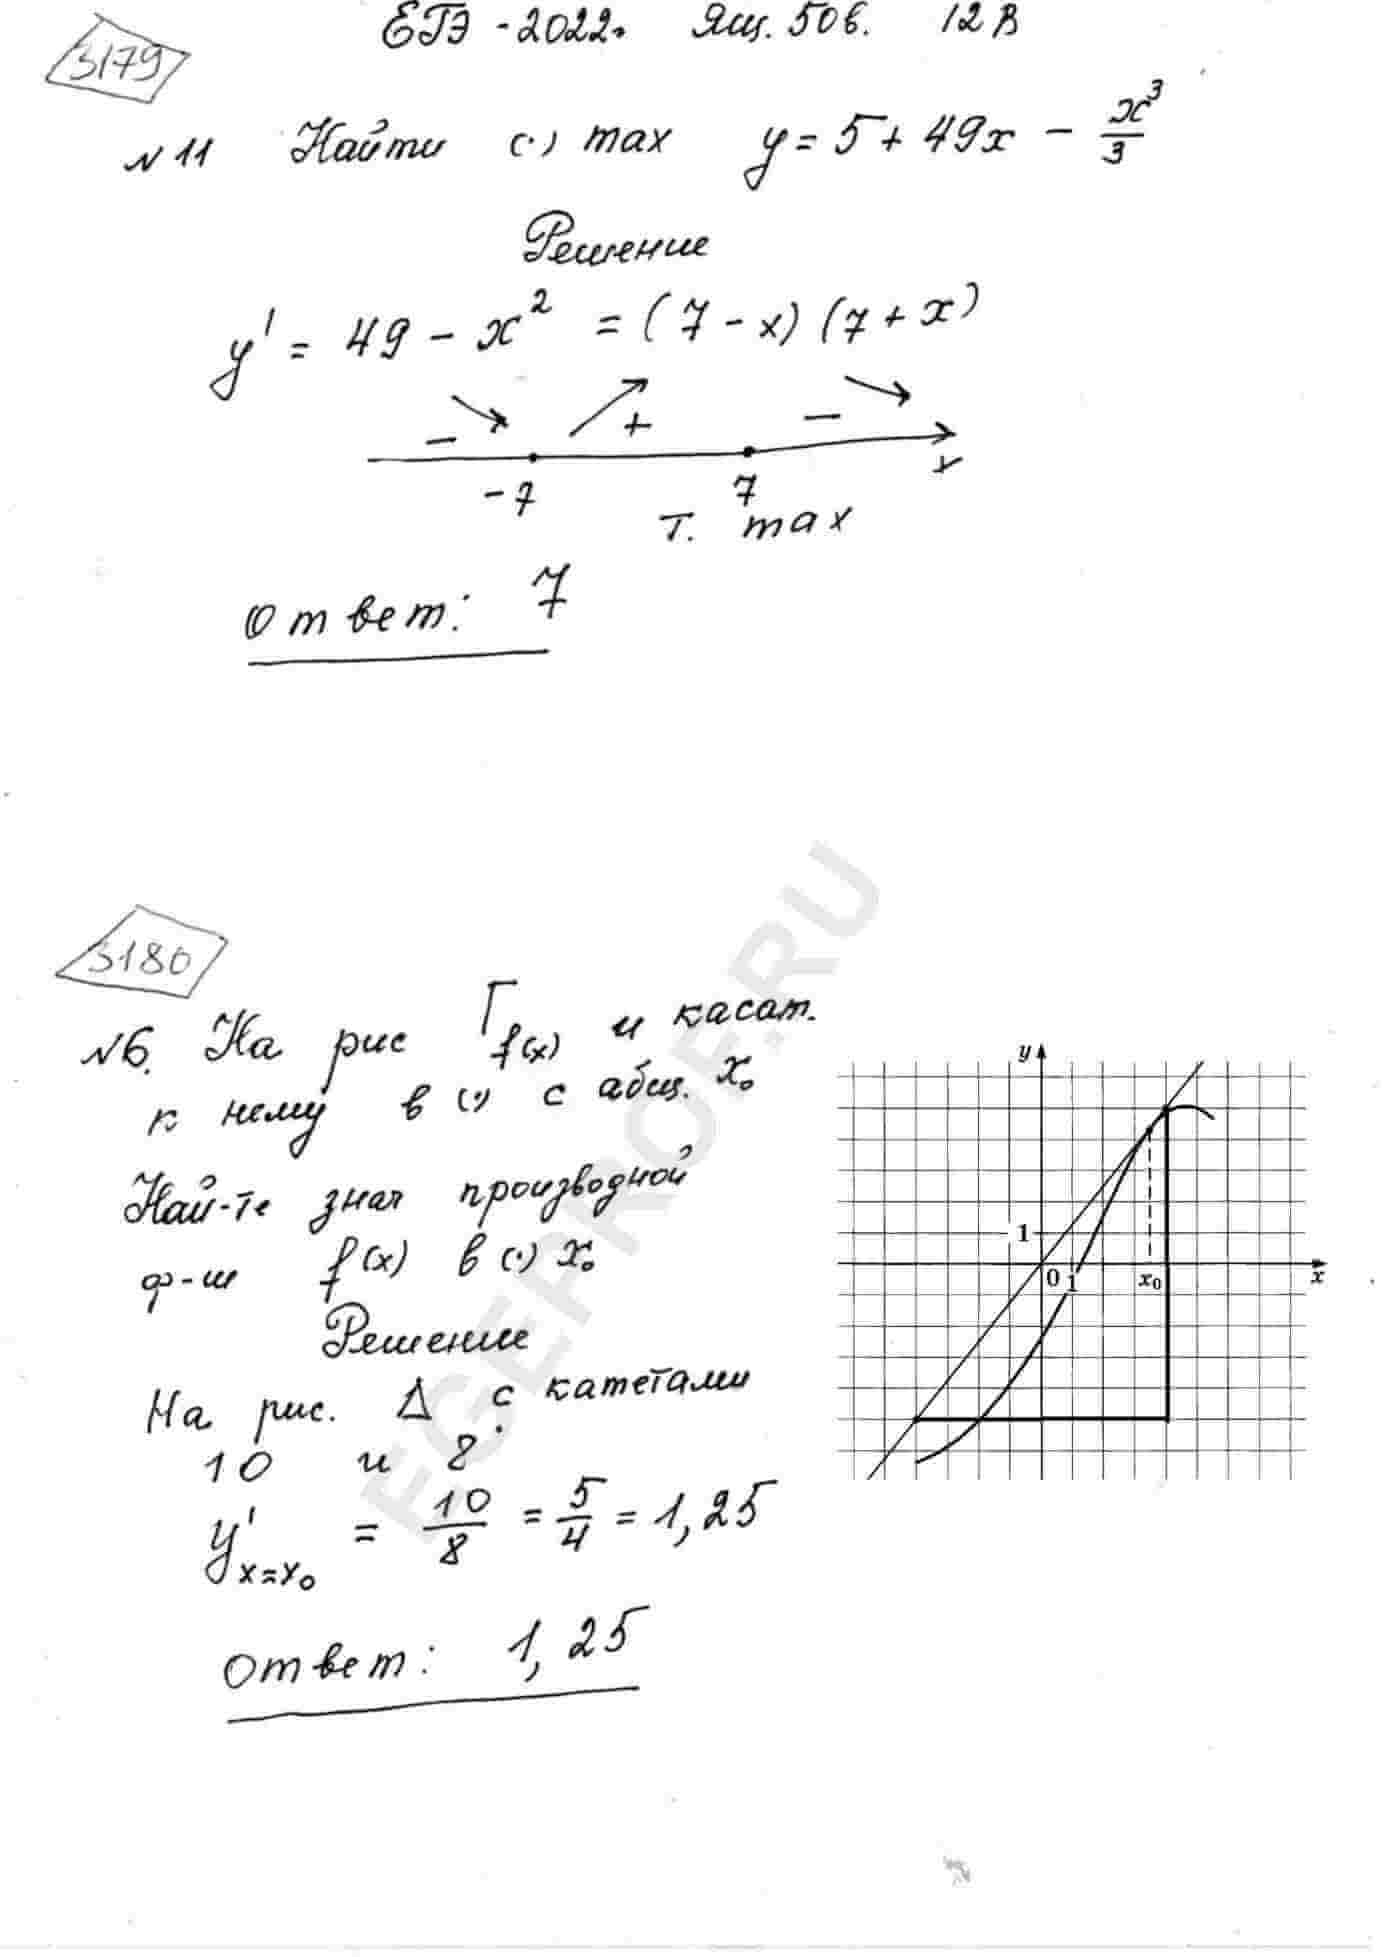 3179
ЕГЭ - 2022г. Ящ. 50в. 12В
№ 11 Найти (·) max y = 5 + 49x - x³/3
Решение
y' = 49 - x² = (7 - x) (7 + x)
- + -
-7 7 x
т. max
Ответ: 7
3180
№6. На рис Г f(x) и касат.
к нему в (·) с абсц. x₀
Най-те знач производной
ф-ии f(x) в (·) x₀
Решение
На рис. Δ с катетами
10 и 8.
y'x=x₀ = 10/8 = 5/4 = 1,25
Ответ: 1,25
y
1
0 1 x₀ x
EGEPROF.RU